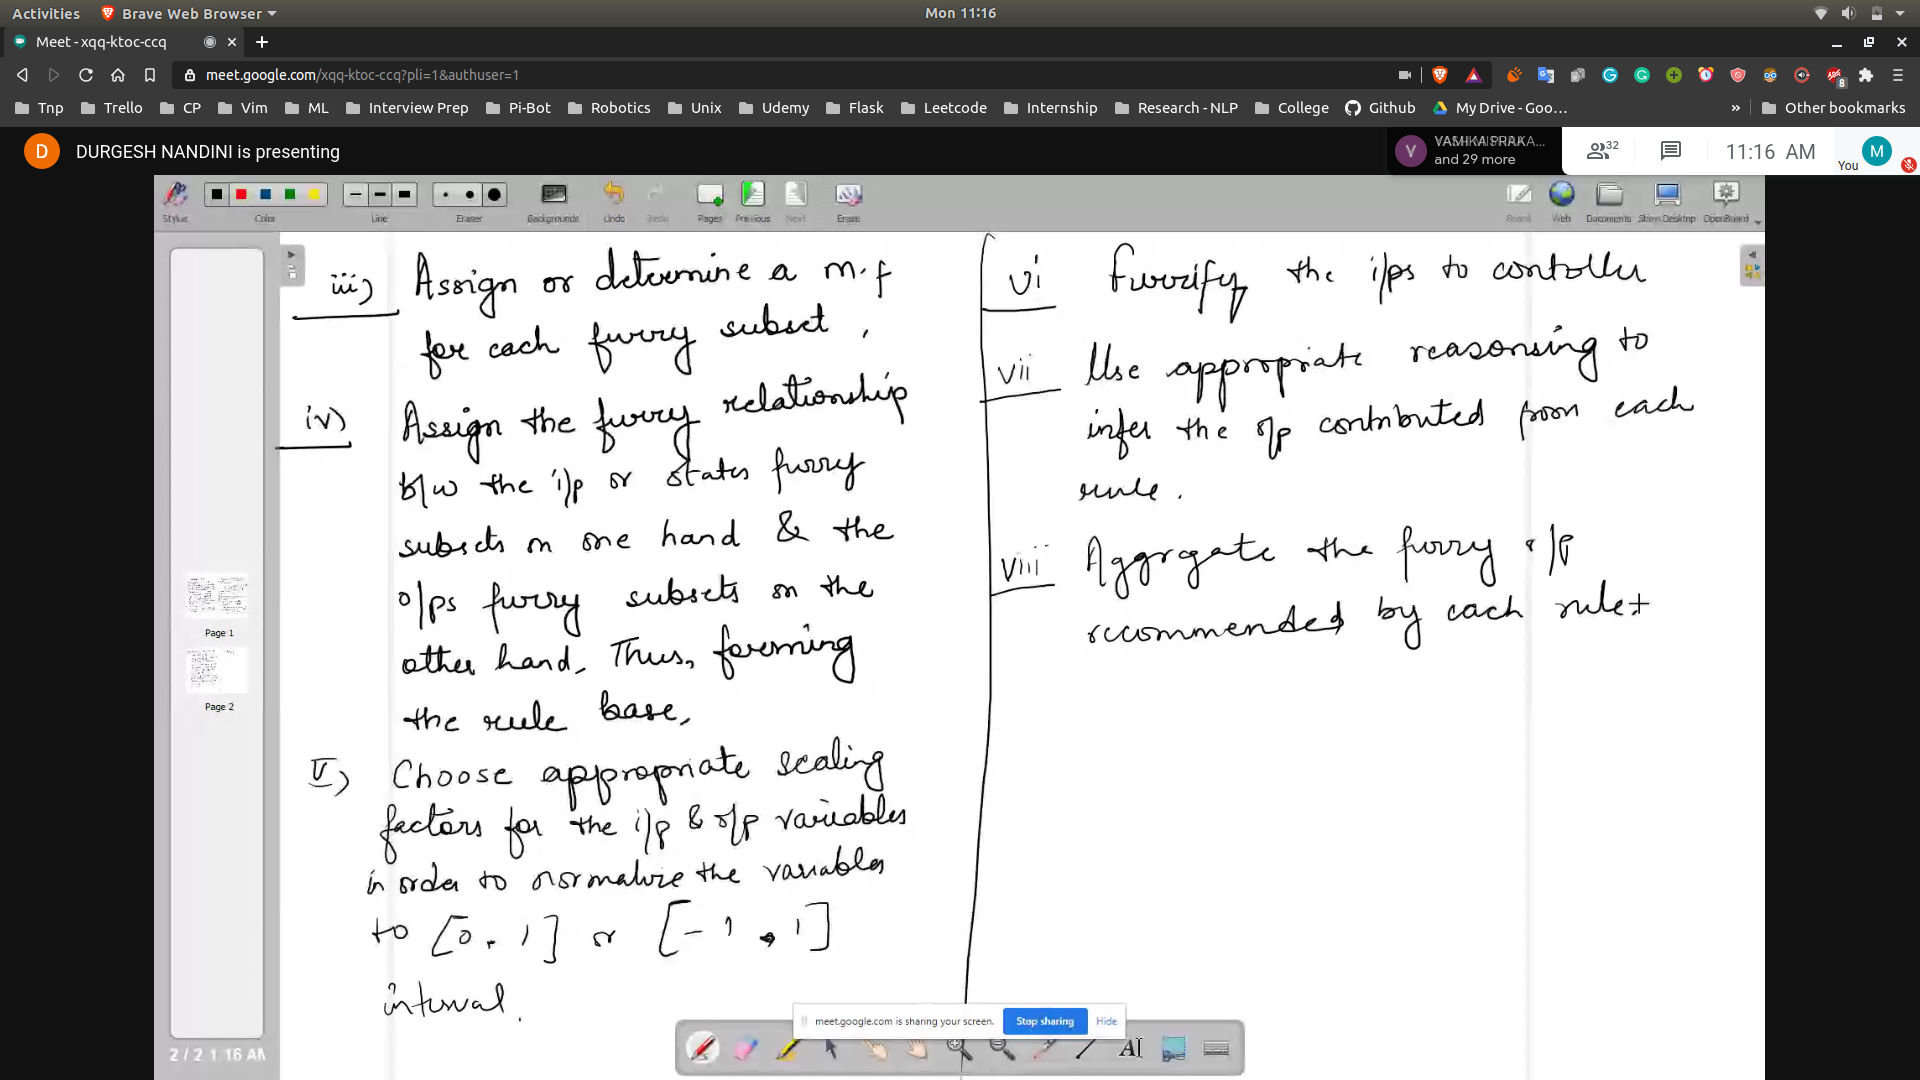 Activities
Brave Web Browser
Mon 11:16
Meet - xqq-ktoc-ccq
meet.google.com/xqq-ktoc-ccq?pli=1&authuser=1
8
Tnp Trello CP Vim ML Interview Prep Pi-Bot Robotics Unix Udemy Flask Leetcode Internship Research - NLP College Github My Drive - Goo... » Other bookmarks
D DURGESH NANDINI is presenting
Y
and 29 more
32
11:16 AM
You M
Stylus Color Line Eraser Backgrounds Undo Redo Pages Previous Next Erase Board Web Documents Show Desktop OpenBoard
Page 1
Page 2
iii) Assign or determine a m.f
for each fuzzy subset,
iv) Assign the fuzzy relationship
b/w the i/p or states fuzzy
subsets on one hand & the
o/ps fuzzy subsets on the
other hand. Thus, forming
the rule base.
V) Choose appropriate scaling
factors for the i/p & o/p variables
in order to normalize the variables
to [0, 1] or [-1, 1]
interval.
vi Fuzzify the i/ps to contoller
vii Use appropriate reasonsing to
infer the o/p contributed from each
rule.
viii Aggrgate the fuzzy o/p
recommended by each rule
meet.google.com is sharing your screen. Stop sharing Hide
2 / 2